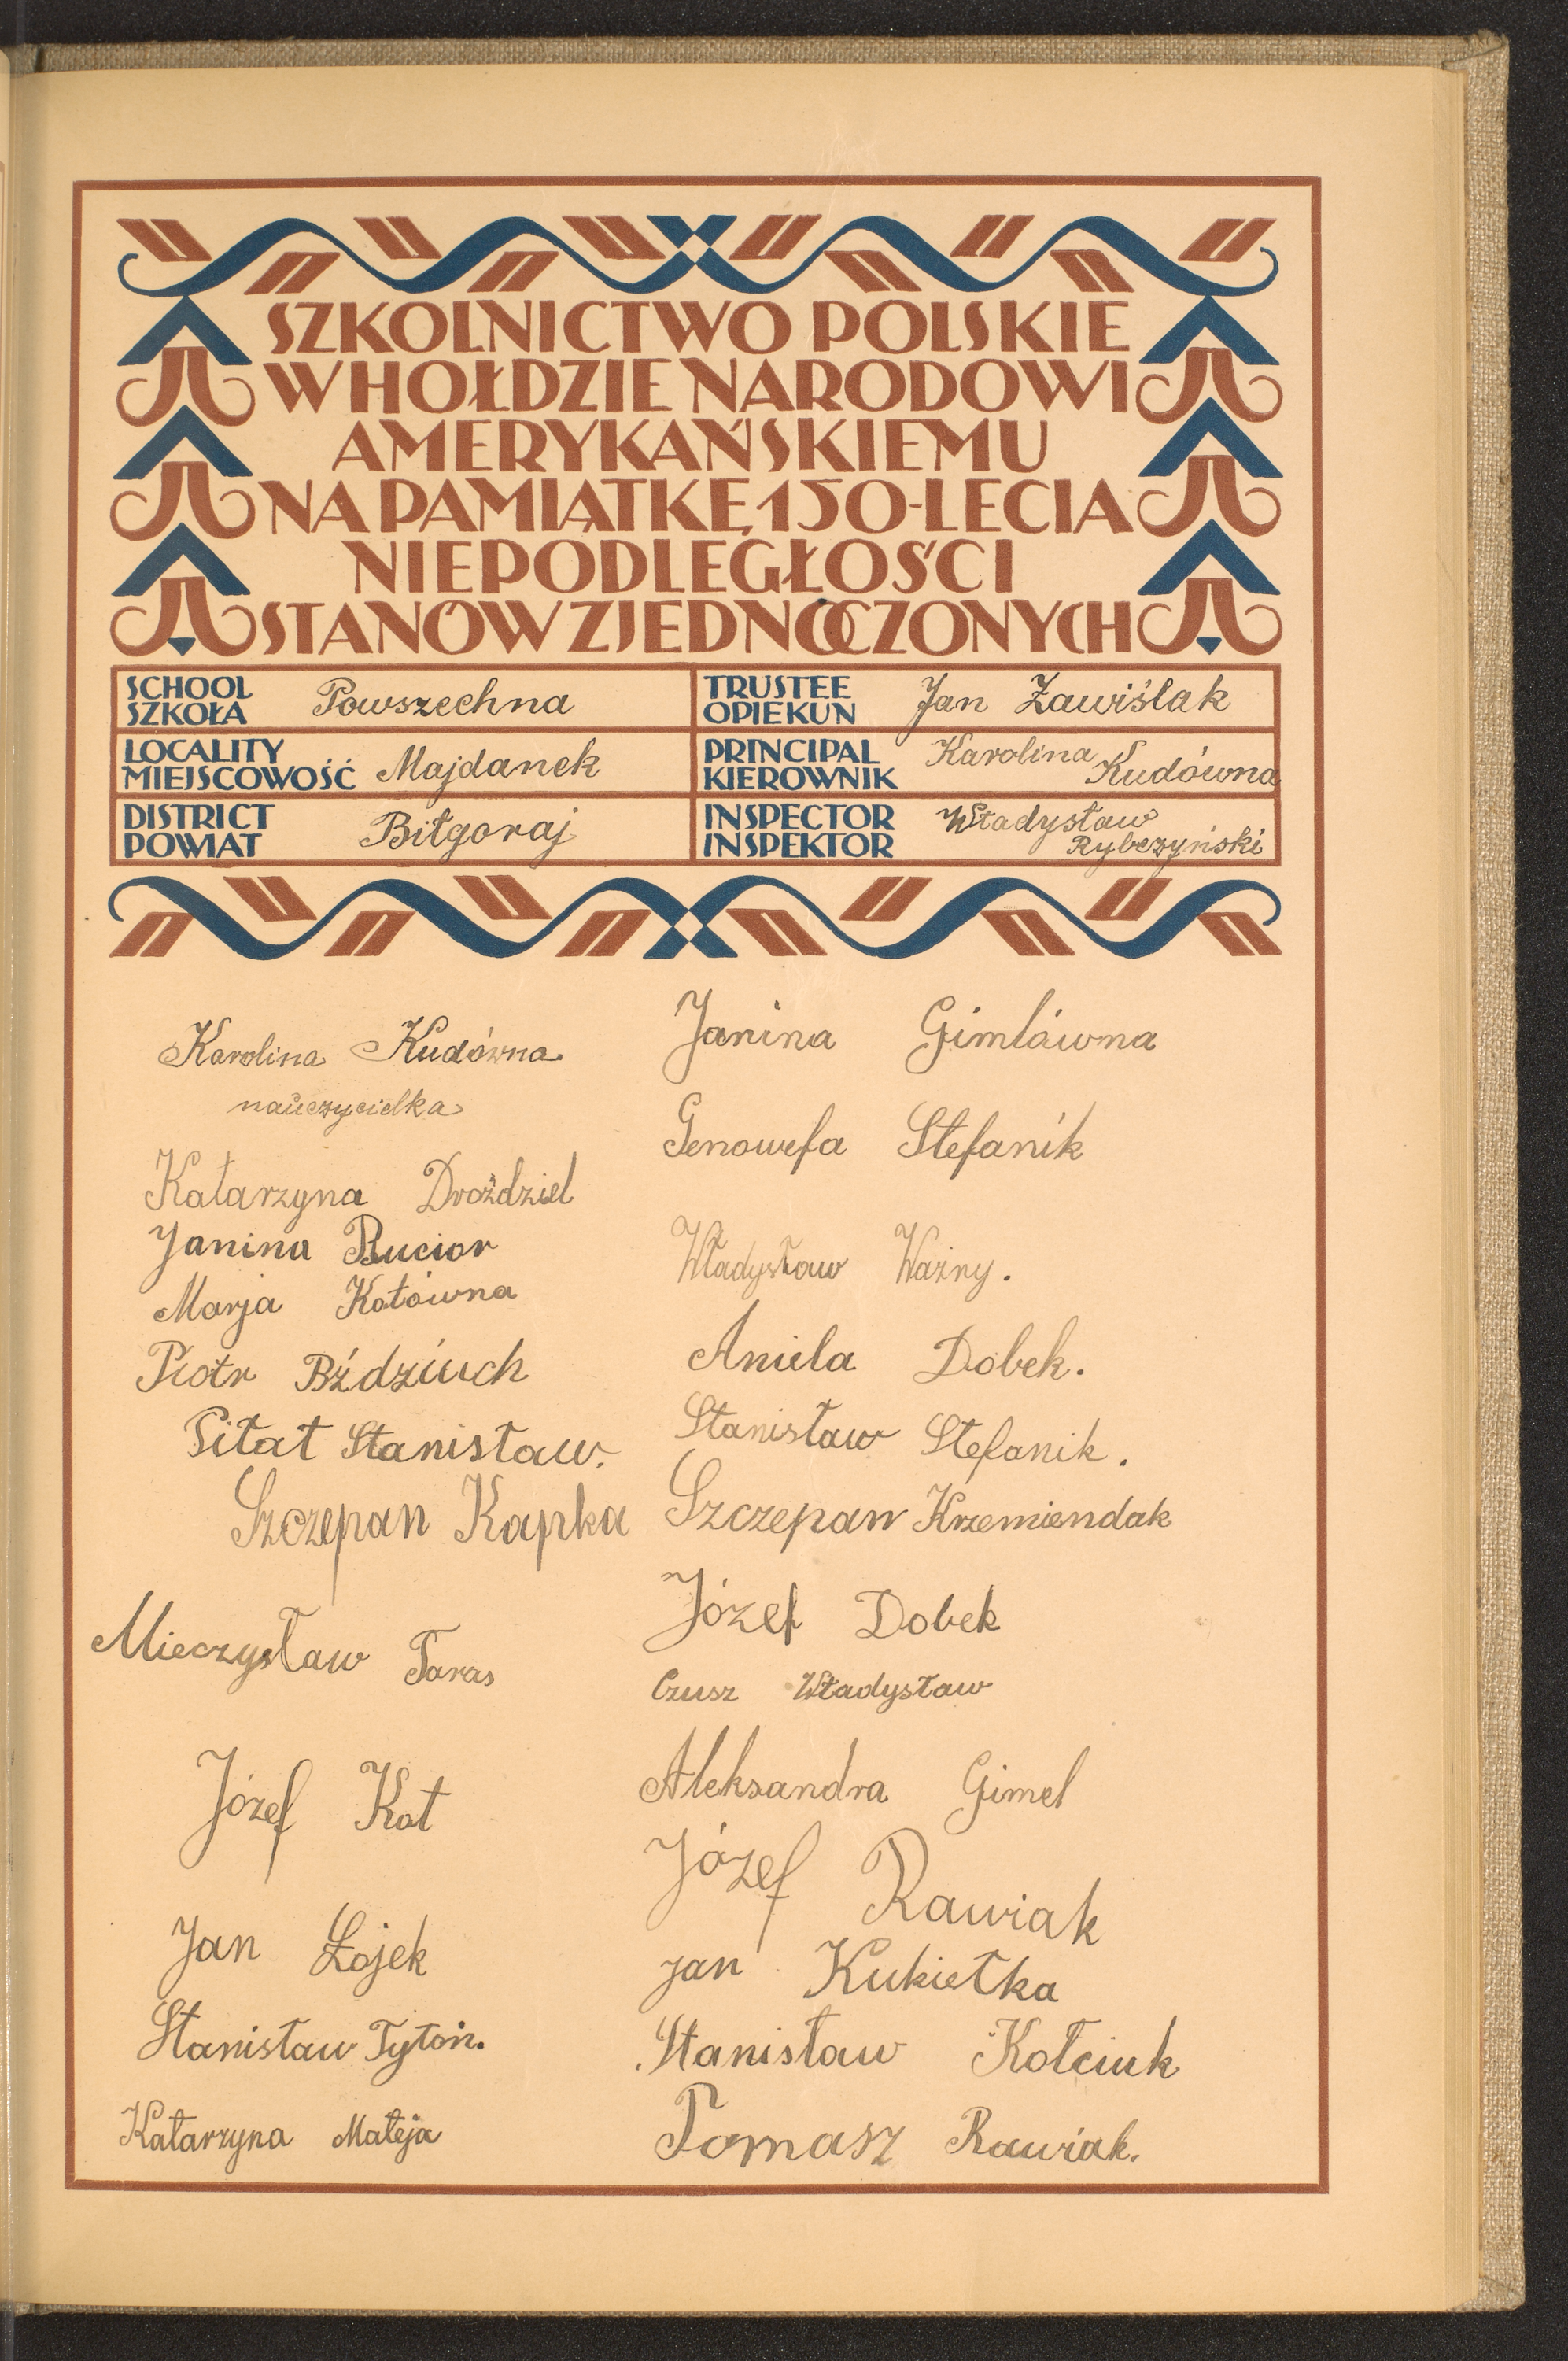 SZKOLNICTWO POLSKIE
W HOŁDZIE NARODOWI
AMERYKAŃSKIEMU
NA PAMIĄTKĘ 150-LECIA
NIEPODLEGŁOŚCI
STANÓW ZJEDNOCZONYCH
SCHOOL
SZKOŁA Powszechna
TRUSTEE
OPIEKUN Jan Zawiślak
LOCALITY
MIEJSCOWOŚĆ Majdanek
PRINCIPAL
KIEROWNIK Karolina Kudówna
DISTRICT
POWIAT Biłgoraj
INSPECTOR
INSPEKTOR Władysław Rybczyński
Karolina Kudówna
nauczycielka
Katarzyna Droździel
Janina Bucior
Marja Kotówna
Piotr Bździuch
Pitat Stanisław.
Szczepan Kapka
Mieczysław Taras
Józef Kot
Jan Łojek
Stanisław Tytoń.
Katarzyna Mateja
Janina Gimlówna
Genowefa Stefanik
Władysław Ważny.
Aniela Dobek.
Stanisław Stefanik.
Szczepan Krzemiendak
Józef Dobek
Czusz Władysław
Aleksandra Gimel
Józef Rawiak
Jan Kukiełka
Stanisław Kołciuk
Tomasz Rawiak.